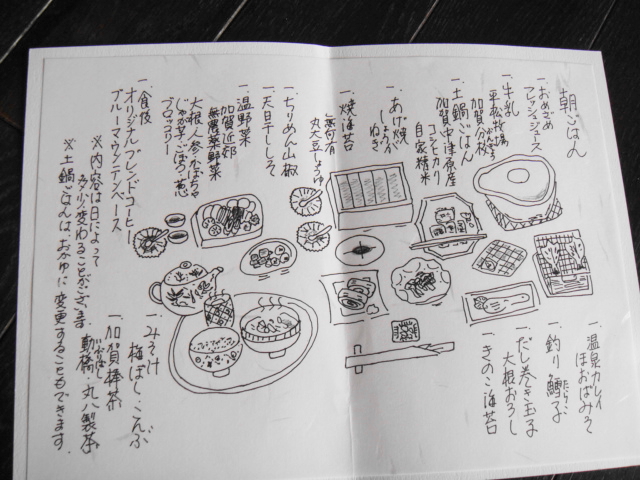 朝ごはん
一.おめざめ
フレッシュジュース
一.牛乳
平松牧場
加賀分校
一.土鍋ごはん
加賀中津原産
コシヒカリ
自家精米
一.あげ焼
しょうが
ねぎ
一.焼海苔
無添加
丸大豆しょうゆ
一.ちりめん山椒
一.天日干ししそ
一.温野菜
加賀近郊
無農薬野菜
大根人参かぼちゃ
じゃが芋ごぼう葱
ブロッコリー
一.食後
オリジナルブレンドコーヒー
ブルーマウンテンベース
※内容は日によって
多少変わることがございます
※土鍋ごはんは、おかゆに変更することもできます.
一.温泉カレイ
ほおばみそ
一.釣り鱈子
たらこ
一.だし巻き玉子
大根おろし
一.きのこ海苔
一.みそ汁
梅ぼし・こんぶ
一.加賀棒茶
動橋・丸八製茶